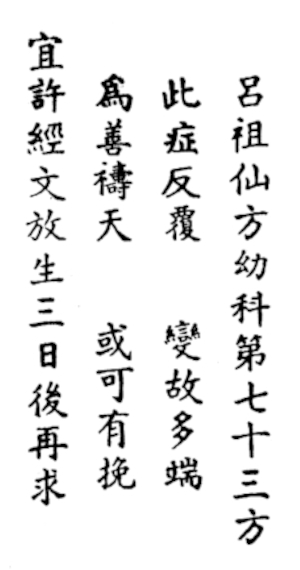 呂祖仙方幼科第七十三方
此症反覆　變故多端
為善禱天　或可有挽
宜許經文放生三日後再求